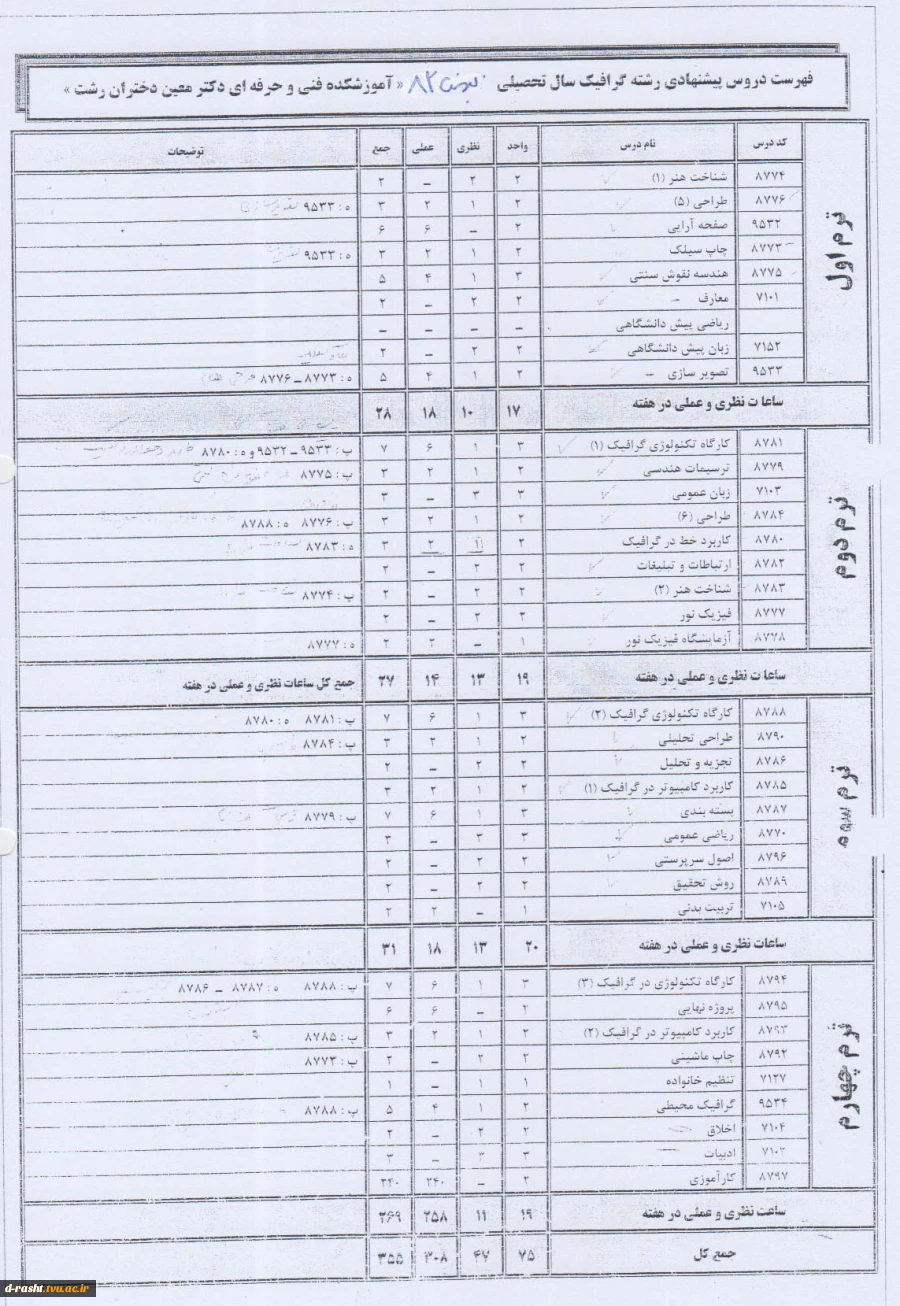 فهرست دروس پیشنهادی رشته گرافیک سال تحصیلی ۸۲ « آموزشکده فنی و حرفه ای دکتر معین دختران رشت »
کد درس نام درس واحد نظری عملی جمع توضیحات
ترم اول
۸۷۷۴ شناخت هنر (۱) ۲ ۲ – ۲
۸۷۷۶ طراحی (۵) ۲ ۱ ۲ ۳ ه : ۹۵۳۳
۹۵۳۲ صفحه آرایی ۲ – ۶ ۶
۸۷۷۳ چاپ سیلک ۲ ۱ ۲ ۳ ه : ۹۵۳۳
۸۷۷۵ هندسه نقوش سنتی ۳ ۱ ۴ ۵
۷۱۰۱ معارف ۲ ۲ – ۲
ریاضی پیش دانشگاهی – – – –
۷۱۵۲ زبان پیش دانشگاهی ۲ ۲ – ۲
۹۵۳۳ تصویر سازی ۲ ۱ ۴ ۵ ه : ۸۷۷۳ – ۸۷۷۶
ساعات نظری و عملی در هفته ۱۷ ۱۰ ۱۸ ۲۸
ترم دوم
۸۷۸۱ کارگاه تکنولوژی گرافیک (۱) ۳ ۱ ۶ ۷ پ : ۹۵۳۳ – ۹۵۳۲ و ه : ۸۷۸۰
۸۷۷۹ ترسیمات هندسی ۲ ۱ ۲ ۳ پ : ۸۷۷۵
۷۱۰۳ زبان عمومی ۳ ۳ – ۳
۸۷۸۴ طراحی (۶) ۲ ۱ ۲ ۳ پ : ۸۷۷۶ ه : ۸۷۸۸
۸۷۸۰ کاربرد خط در گرافیک ۲ ۱ ۲ ۳ ه : ۸۷۸۳
۸۷۸۲ ارتباطات و تبلیغات ۲ ۲ – ۲
۸۷۸۳ شناخت هنر (۲) ۲ ۲ – ۲ پ : ۸۷۷۴
۸۷۷۷ فیزیک نور ۲ ۲ – ۲
۸۷۷۸ آزمایشگاه فیزیک نور ۱ – ۲ ۲ ه : ۸۷۷۷
ساعات نظری و عملی در هفته ۱۹ ۱۳ ۱۴ ۲۷ جمع کل ساعات نظری و عملی در هفته
ترم سوم
۸۷۸۸ کارگاه تکنولوژی گرافیک (۲) ۳ ۱ ۶ ۷ پ : ۸۷۸۱ ه : ۸۷۸۰
۸۷۹۰ طراحی تحلیلی ۲ ۱ ۲ ۳ پ : ۸۷۸۴
۸۷۸۶ تجزیه و تحلیل ۲ ۲ – ۲
۸۷۸۵ کاربرد کامپیوتر در گرافیک (۱) ۲ ۱ ۲ ۳
۸۷۸۷ بسته بندی ۳ ۱ ۶ ۷ پ : ۸۷۷۹
۸۷۷۰ ریاضی عمومی ۳ ۳ – ۳
۸۷۹۶ اصول سرپرستی ۲ ۲ – ۲
۸۷۸۹ روش تحقیق ۲ ۲ – ۲
۷۱۰۵ تربیت بدنی ۱ – ۲ ۲
ساعات نظری و عملی در هفته ۲۰ ۱۳ ۱۸ ۳۱
ترم چهارم
۸۷۹۴ کارگاه تکنولوژی در گرافیک (۳) ۳ ۱ ۶ ۷ پ : ۸۷۸۸ ه : ۸۷۸۷ – ۸۷۸۶
۸۷۹۵ پروژه نهایی ۲ – ۶ ۶
۸۷۹۳ کاربرد کامپیوتر در گرافیک (۲) ۲ ۱ ۲ ۳ پ : ۸۷۸۵
۸۷۹۲ چاپ ماشینی ۲ ۲ – ۲ پ : ۸۷۷۳
۷۱۲۷ تنظیم خانواده ۱ ۱ – ۱
۹۵۳۴ گرافیک محیطی ۲ ۱ ۴ ۵ پ : ۸۷۸۸
۷۱۰۴ اخلاق ۲ ۲ – ۲
۷۱۰۲ ادبیات ۳ ۳ – ۳
۸۷۹۷ کارآموزی ۲ – ۲۴۰ ۲۴۰
ساعت نظری و عملی در هفته ۱۹ ۱۱ ۲۵۸ ۲۶۹
جمع کل ۷۵ ۴۷ ۳۰۸ ۳۵۵
d-rasht.tvu.ac.ir